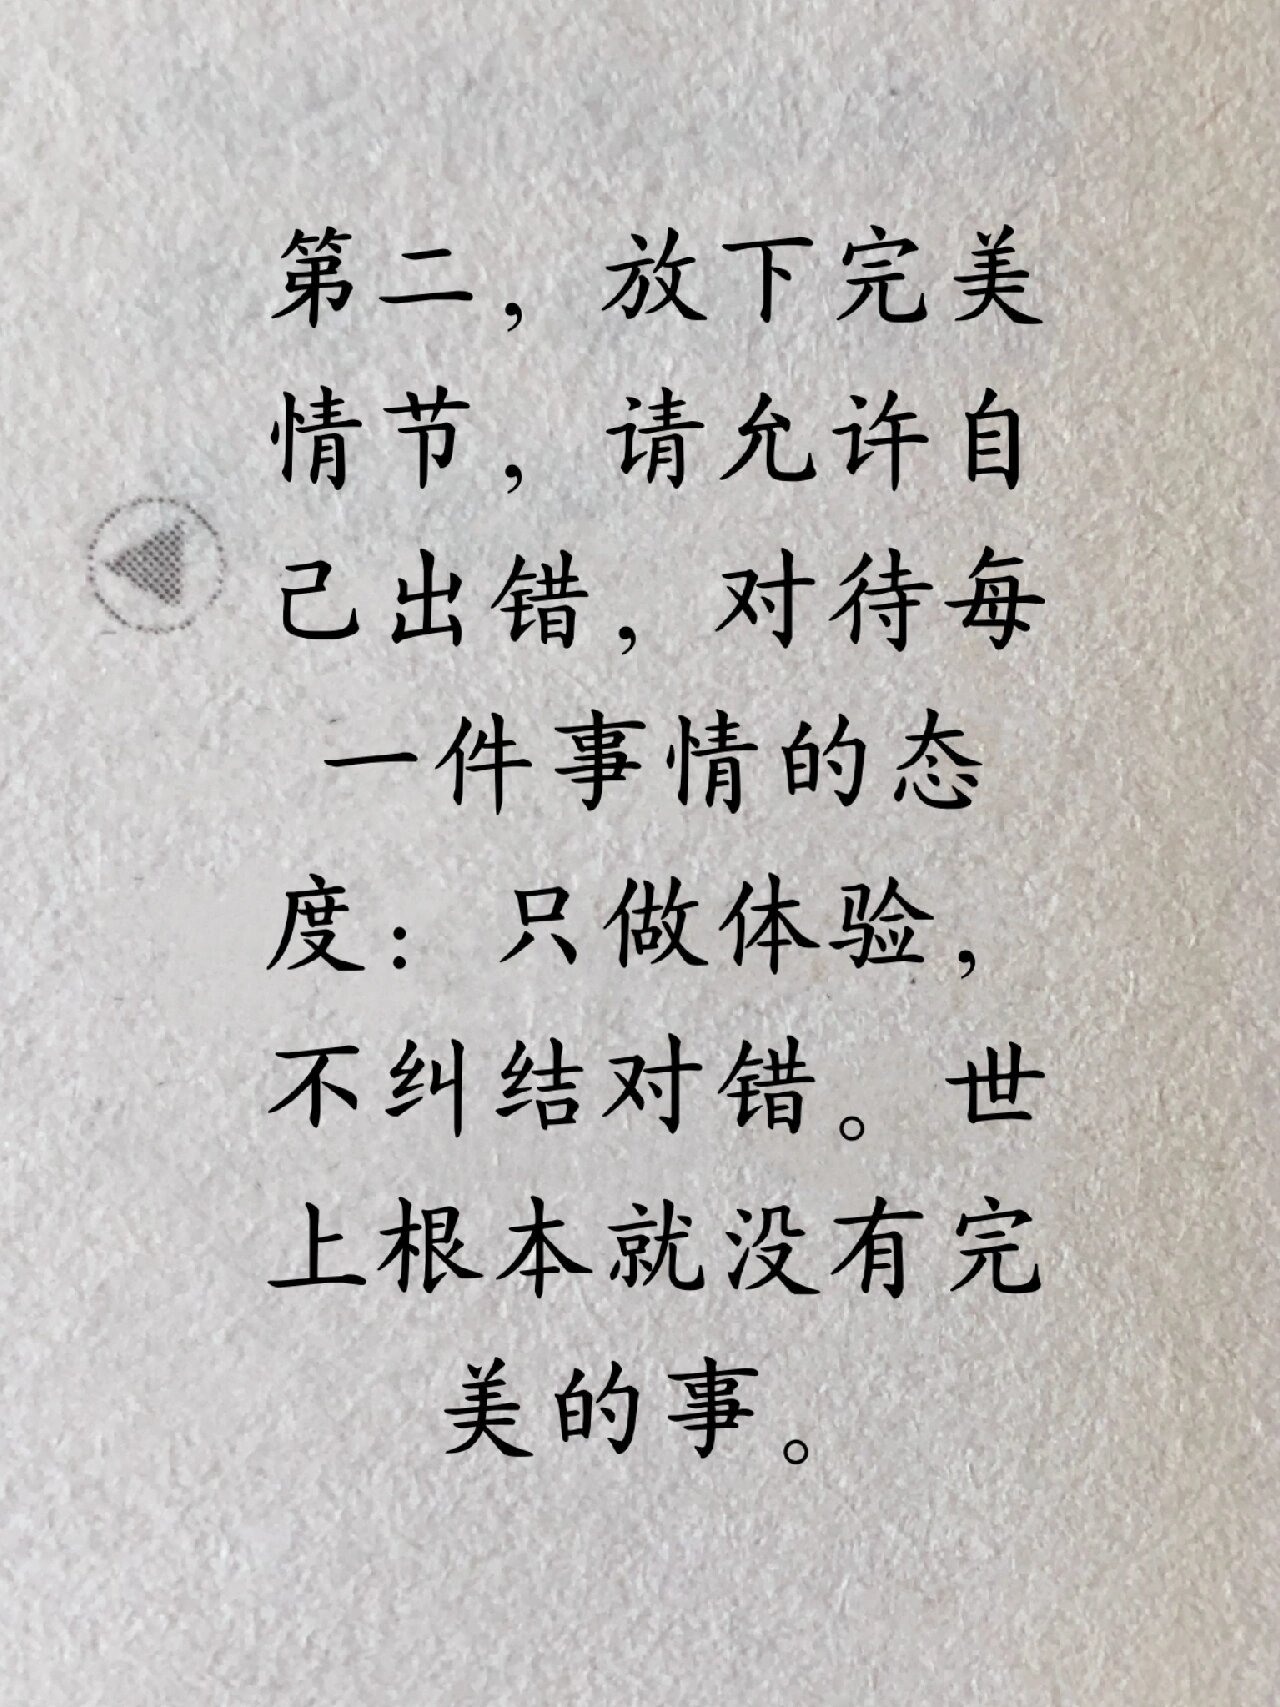 第二，放下完美
情节，请允许自
己出错，对待每
一件事情的态
度：只做体验，
不纠结对错。世
上根本就没有完
美的事。